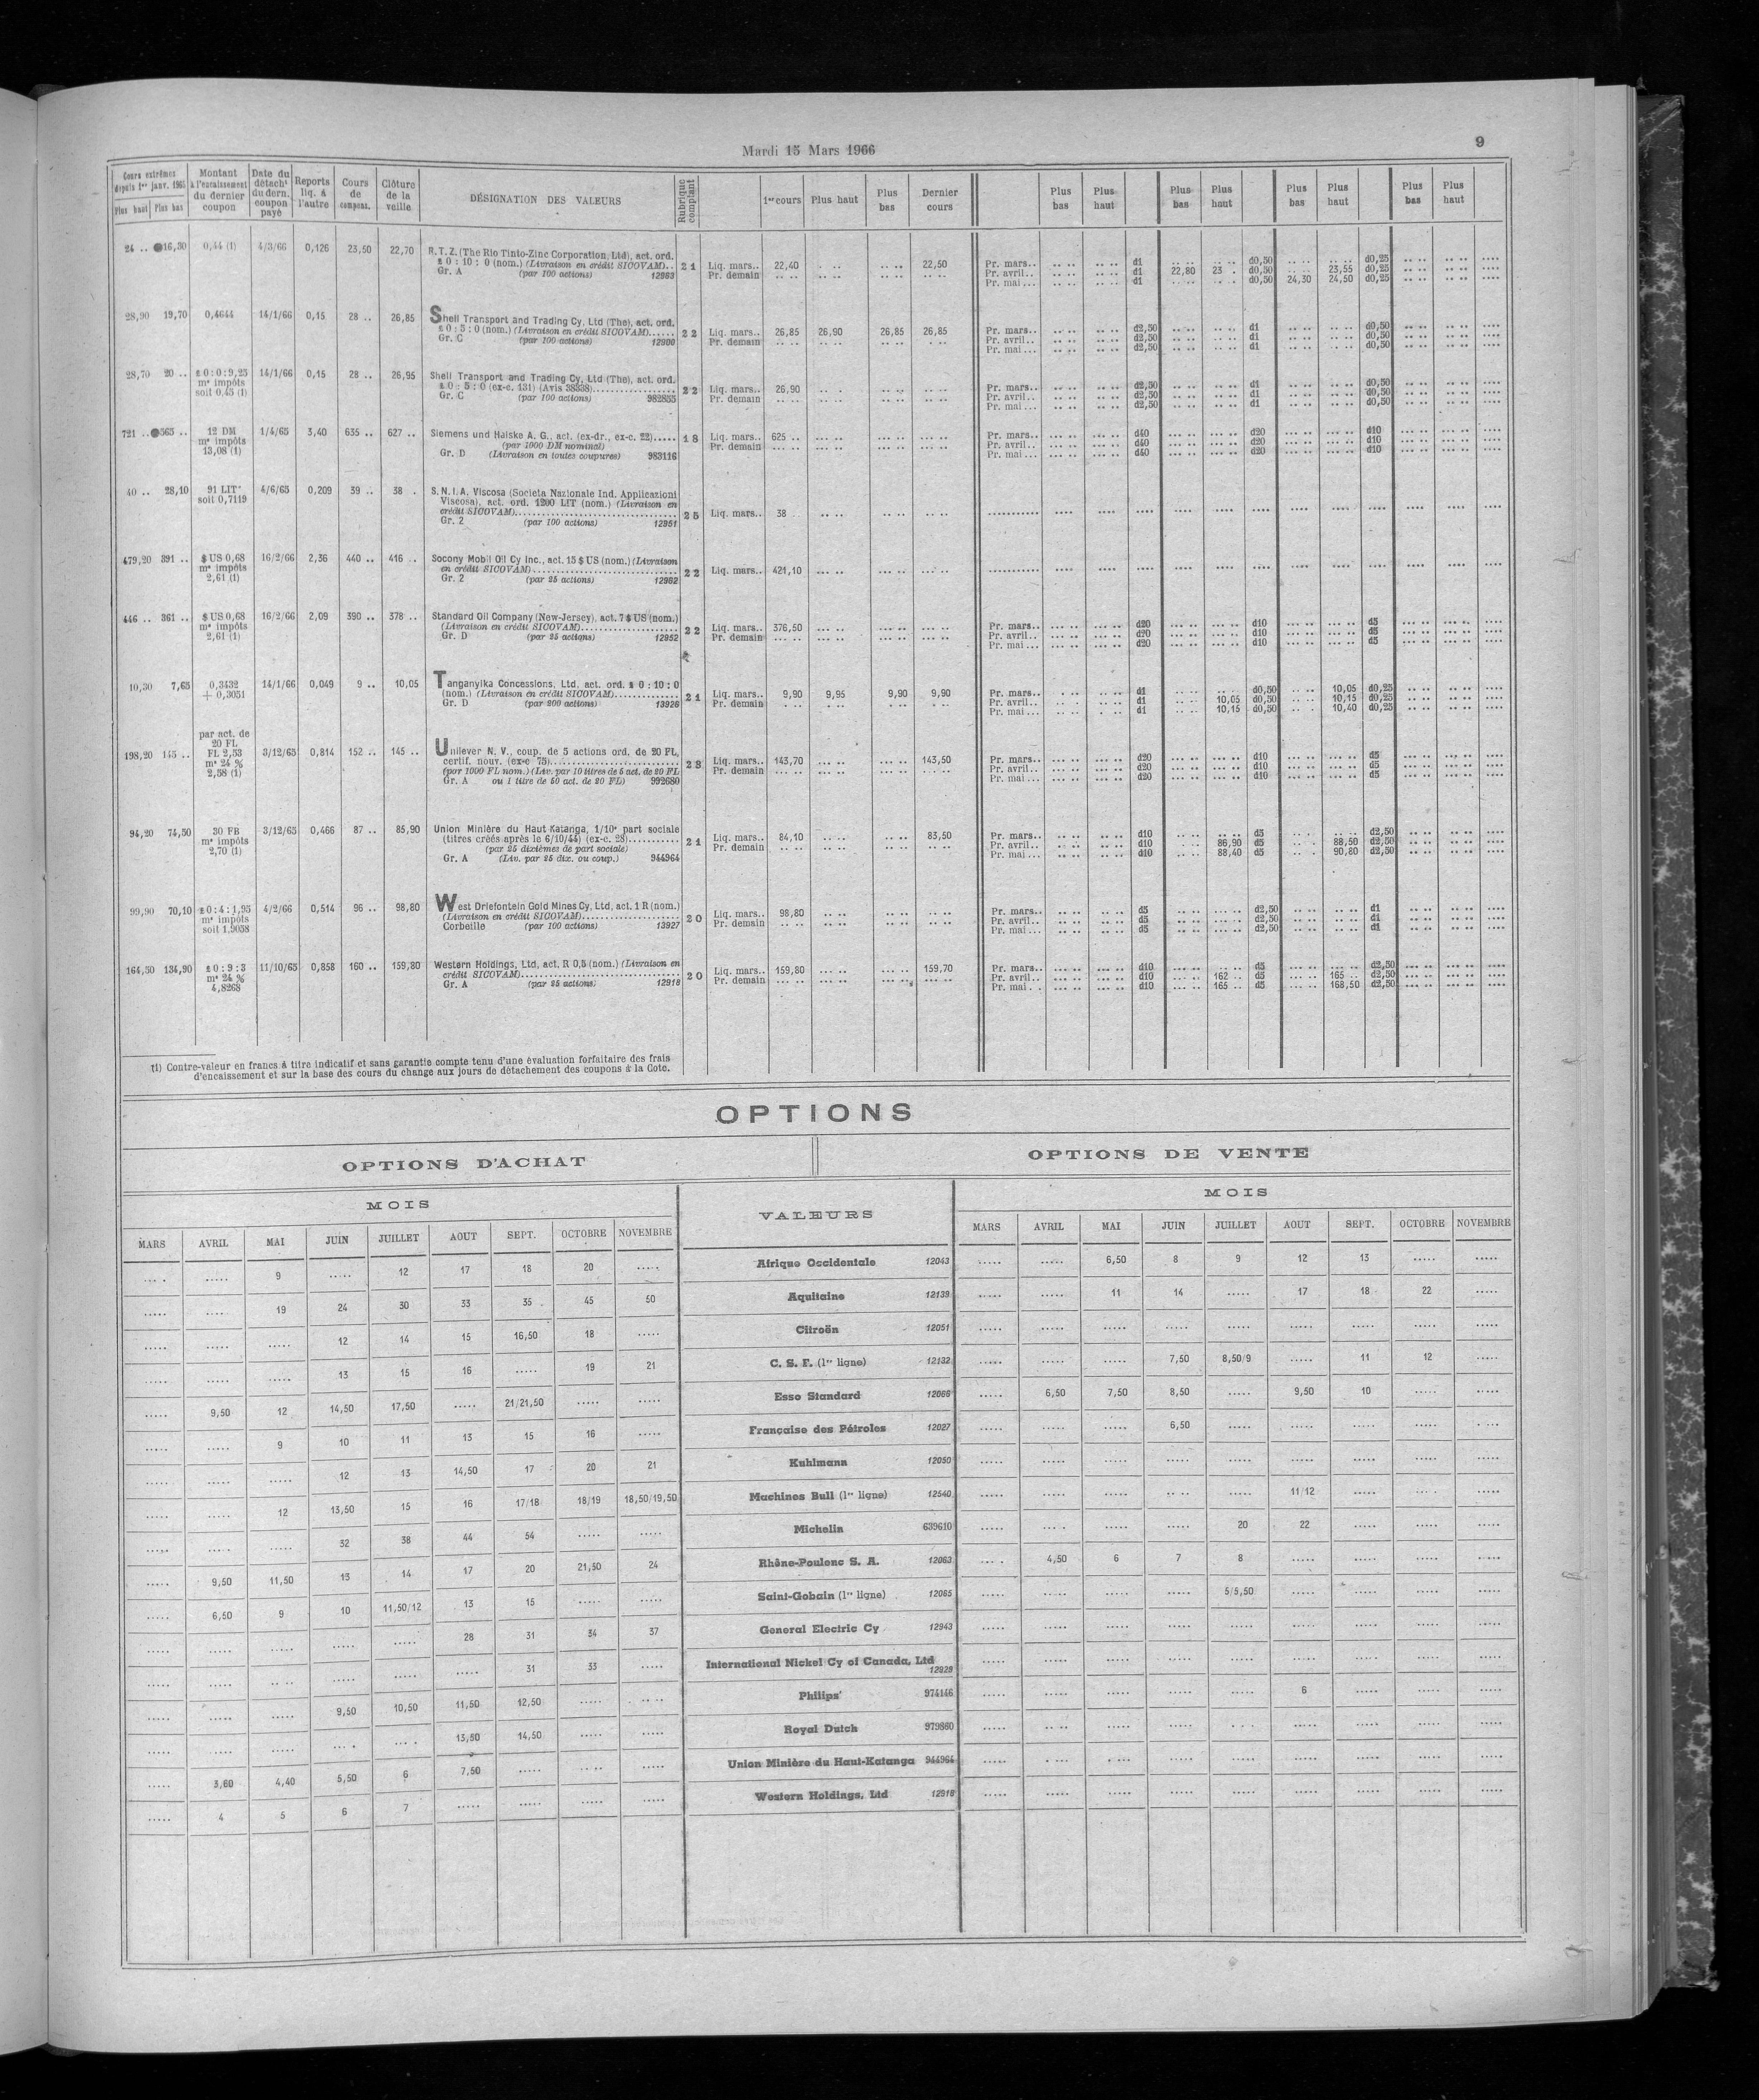 Mardi 15 Mars 1966
9
Cours extrêmes depuis 1er janv. 1965 Plus haut Plus bas | Montant à l'encaissement du dernier coupon | Date du détacht du dern. coupon payé | Reports liq. à l'autre | Cours de compens. | Clôture de la veille | DÉSIGNATION DES VALEURS | Rubrique comptant | 1er cours | Plus haut | Plus bas | Dernier cours | Plus bas | Plus haut | Plus bas | Plus haut | Plus bas | Plus haut | Plus bas | Plus haut
24 .. 16,30 0,44 (1) 4/3/66 0,126 23,50 22,70 R.T.Z. (The Rio Tinto-Zinc Corporation, Ltd), act. ord.
£ 0 : 10 : 0 (nom.) (Livraison en crédit SICOVAM).. 21 Liq. mars.. 22,40 22,50 Pr. mars.. d1 d0,50 d0,25
Gr. A (par 100 actions) 12963 Pr. demain Pr. avril.. d1 22,80 23 . d0,50 23,55 d0,25
Pr. mai... d1 d0,50 24,30 24,50 d0,25
28,90 19,70 0,4644 14/1/66 0,15 28 .. 26,85 Shell Transport and Trading Cy, Ltd (The), act. ord.
£ 0 : 5 : 0 (nom.) (Livraison en crédit SICOVAM)...... 22 Liq. mars.. 26,85 26,90 26,85 26,85 Pr. mars.. d2,50 d1 d0,50
Gr. C (par 100 actions) Pr. demain Pr. avril.. d2,50 d1 d0,50
Pr. mai... d2,50 d1 d0,50
28,70 20 .. £ 0 : 0 : 9,25 14/1/66 0,15 28 .. 26,95 Shell Transport and Trading Cy, Ltd (The), act. ord.
ms impôts £ 0 : 5 : 0 (ex-c. 131) (Avis 38338)................ 22 Liq. mars.. 26,90 Pr. mars.. d2,50 d1 d0,50
soit 0,45 (1) Gr. C (par 100 actions) 982855 Pr. demain Pr. avril.. d2,50 d1 d0,50
Pr. mai... d2,50 d1 d0,50
721 .. 565 .. 12 DM 1/4/65 3,40 635 .. 627 .. Siemens und Halske A. G., act. (ex-dr., ex-c. 22)..... 18 Liq. mars.. 625 .. Pr. mars.. d40 d20 d10
ms impôts (par 1000 DM nominal) Pr. demain Pr. avril.. d40 d20 d10
13,08 (1) Gr. D (Livraison en toutes coupures) 983116 Pr. mai... d40 d20 d10
40 .. 28,10 91 LIT 4/6/65 0,209 39 .. 38 . S.N.I.A. Viscosa (Societa Nazionale Ind. Applicazioni
soit 0,7119 Viscosa), act. ord. 1200 LIT (nom.) (Livraison en
crédit SICOVAM)................ 25 Liq. mars.. 38 ..
Gr. 2 (par 100 actions) 12951
479,20 391 .. $ US 0,68 16/2/66 2,36 440 .. 416 .. Socony Mobil Oil Cy Inc., act. 15 $ US (nom.) (Livraison
ms impôts en crédit SICOVAM)................ 22 Liq. mars.. 421,10
2,61 (1) Gr. 2 (par 25 actions) 12982
446 .. 361 .. $ US 0,68 16/2/66 2,09 390 .. 378 .. Standard Oil Company (New-Jersey), act. 7 $ US (nom.)
ms impôts (Livraison en crédit SICOVAM)................ 22 Liq. mars.. 376,50 Pr. mars.. d20 d10 d5
2,61 (1) Gr. D (par 25 actions) 12952 Pr. demain Pr. avril.. d20 d10 d5
Pr. mai... d20 d10 d5
10,30 7,65 0,3432 14/1/66 0,049 9 .. 10,05 Tanganyika Concessions, Ltd, act. ord. £ 0 : 10 : 0
+ 0,3051 (nom.) (Livraison en crédit SICOVAM)............ 21 Liq. mars.. 9,90 9,95 9,90 9,90 Pr. mars.. d1 d0,50 10,05 d0,25
Gr. D (par 200 actions) 13926 Pr. demain Pr. avril.. d1 10,05 d0,50 10,15 d0,25
Pr. mai... d1 10,15 d0,50 10,40 d0,25
par act. de
20 FL
198,20 145 .. FL 2,53 3/12/65 0,814 152 .. 145 .. Unilever N. V., coup. de 5 actions ord. de 20 FL,
ms 24 % certif. nouv. (ex-c 75)................ 28 Liq. mars.. 143,70 143,50 Pr. mars.. d20 d10 d5
2,58 (1) (par 1000 FL nom.) (Liv. par 10 titres de 5 act. de 20 FL Pr. demain Pr. avril.. d20 d10 d5
Gr. A ou 1 titre de 50 act. de 20 FL) 992680 Pr. mai... d20 d10 d5
94,20 74,50 30 FB 3/12/65 0,466 87 .. 85,90 Union Minière du Haut-Katanga, 1/10e part sociale
ms impôts (titres créés après le 6/10/44) (ex-c. 28)........... 21 Liq. mars.. 84,10 83,50 Pr. mars.. d10 d5 d2,50
2,70 (1) (par 25 dixièmes de part sociale) Pr. demain Pr. avril.. d10 86,90 d5 88,50 d2,50
Gr. A (Liv. par 25 dix. ou coup.) 944964 Pr. mai... d10 88,40 d5 90,80 d2,50
99,90 70,10 £ 0 : 4 : 1,95 4/2/66 0,514 96 .. 98,80 West Driefontein Gold Mines Cy, Ltd, act. 1 R (nom.)
ms impôts (Livraison en crédit SICOVAM)................ 20 Liq. mars.. 98,80 Pr. mars.. d5 d2,50 d1
soit 1,9058 Corbeille (par 100 actions) 13927 Pr. demain Pr. avril.. d5 d2,50 d1
Pr. mai... d5 d2,50 d1
164,50 134,90 £ 0 : 9 : 3 11/10/65 0,858 160 .. 159,80 Western Holdings, Ltd, act. R 0,5 (nom.) (Livraison en
ms 24 % crédit SICOVAM)................ 20 Liq. mars.. 159,80 159,70 Pr. mars.. d10 d5 d2,50
4,8268 Gr. A (par 25 actions) 12918 Pr. demain Pr. avril.. d10 162 .. d5 165 .. d2,50
Pr. mai.. d10 165 .. d5 168,50 d2,50
(1) Contre-valeur en francs à titre indicatif et sans garantie compte tenu d'une évaluation forfaitaire des frais
d'encaissement et sur la base des cours du change aux jours de détachement des coupons à la Cote.
OPTIONS
OPTIONS D'ACHAT
OPTIONS DE VENTE
MOIS VALEURS MOIS
MARS AVRIL MAI JUIN JUILLET AOUT SEPT. OCTOBRE NOVEMBRE MARS AVRIL MAI JUIN JUILLET AOUT SEPT. OCTOBRE NOVEMBRE
..... ..... 9 ..... 12 17 18 20 ..... Afrique Occidentale 12043 ..... ..... 6,50 8 9 12 13 ..... .....
..... ..... 19 24 30 33 35 45 50 Aquitaine 12139 ..... ..... 11 14 ..... 17 18 22 .....
..... ..... ..... 12 14 15 16,50 18 ..... Citroën 12051 ..... ..... ..... ..... ..... ..... ..... ..... .....
..... ..... ..... 13 15 16 ..... 19 21 C. S. F. (1re ligne) 12132 ..... ..... ..... 7,50 8,50/9 ..... 11 12 .....
..... 9,50 12 14,50 17,50 ..... 21/21,50 ..... ..... Esso Standard 12066 ..... 6,50 7,50 8,50 ..... 9,50 10 ..... .....
..... ..... 9 10 11 13 15 16 ..... Française des Pétroles 12027 ..... ..... ..... 6,50 ..... ..... ..... ..... .....
..... ..... ..... 12 13 14,50 17 20 21 Kuhlmann 12050 ..... ..... ..... ..... ..... ..... ..... ..... .....
..... ..... 12 13,50 15 16 17/18 18/19 18,50/19,50 Machines Bull (1re ligne) 12540 ..... ..... ..... ..... ..... 11/12 ..... ..... .....
..... ..... ..... 32 38 44 54 ..... ..... Michelin 639610 ..... ..... ..... ..... 20 22 ..... ..... .....
..... 9,50 11,50 13 14 17 20 21,50 24 Rhône-Poulenc S. A. 12063 ..... 4,50 6 7 8 ..... ..... ..... .....
..... 6,50 9 10 11,50/12 13 15 ..... ..... Saint-Gobain (1re ligne) 12065 ..... ..... ..... ..... 5/5,50 ..... ..... ..... .....
..... ..... ..... ..... ..... 28 31 34 37 General Electric Cy 12943 ..... ..... ..... ..... ..... ..... ..... ..... .....
..... ..... ..... ..... ..... ..... 31 33 ..... International Nickel Cy of Canada, Ltd 12928 ..... ..... ..... ..... ..... ..... ..... ..... .....
..... ..... ..... 9,50 10,50 11,50 12,50 ..... ..... Philips' 974146 ..... ..... ..... ..... ..... 6 ..... ..... .....
..... ..... ..... ..... ..... 13,50 14,50 ..... ..... Royal Dutch 979860 ..... ..... ..... ..... ..... ..... ..... ..... .....
..... 3,60 4,40 5,50 6 7,50 ..... ..... ..... Union Minière du Haut-Katanga 944964 ..... ..... ..... ..... ..... ..... ..... ..... .....
..... 4 5 6 7 ..... ..... ..... ..... Western Holdings, Ltd 12918 ..... ..... ..... ..... ..... ..... ..... ..... .....